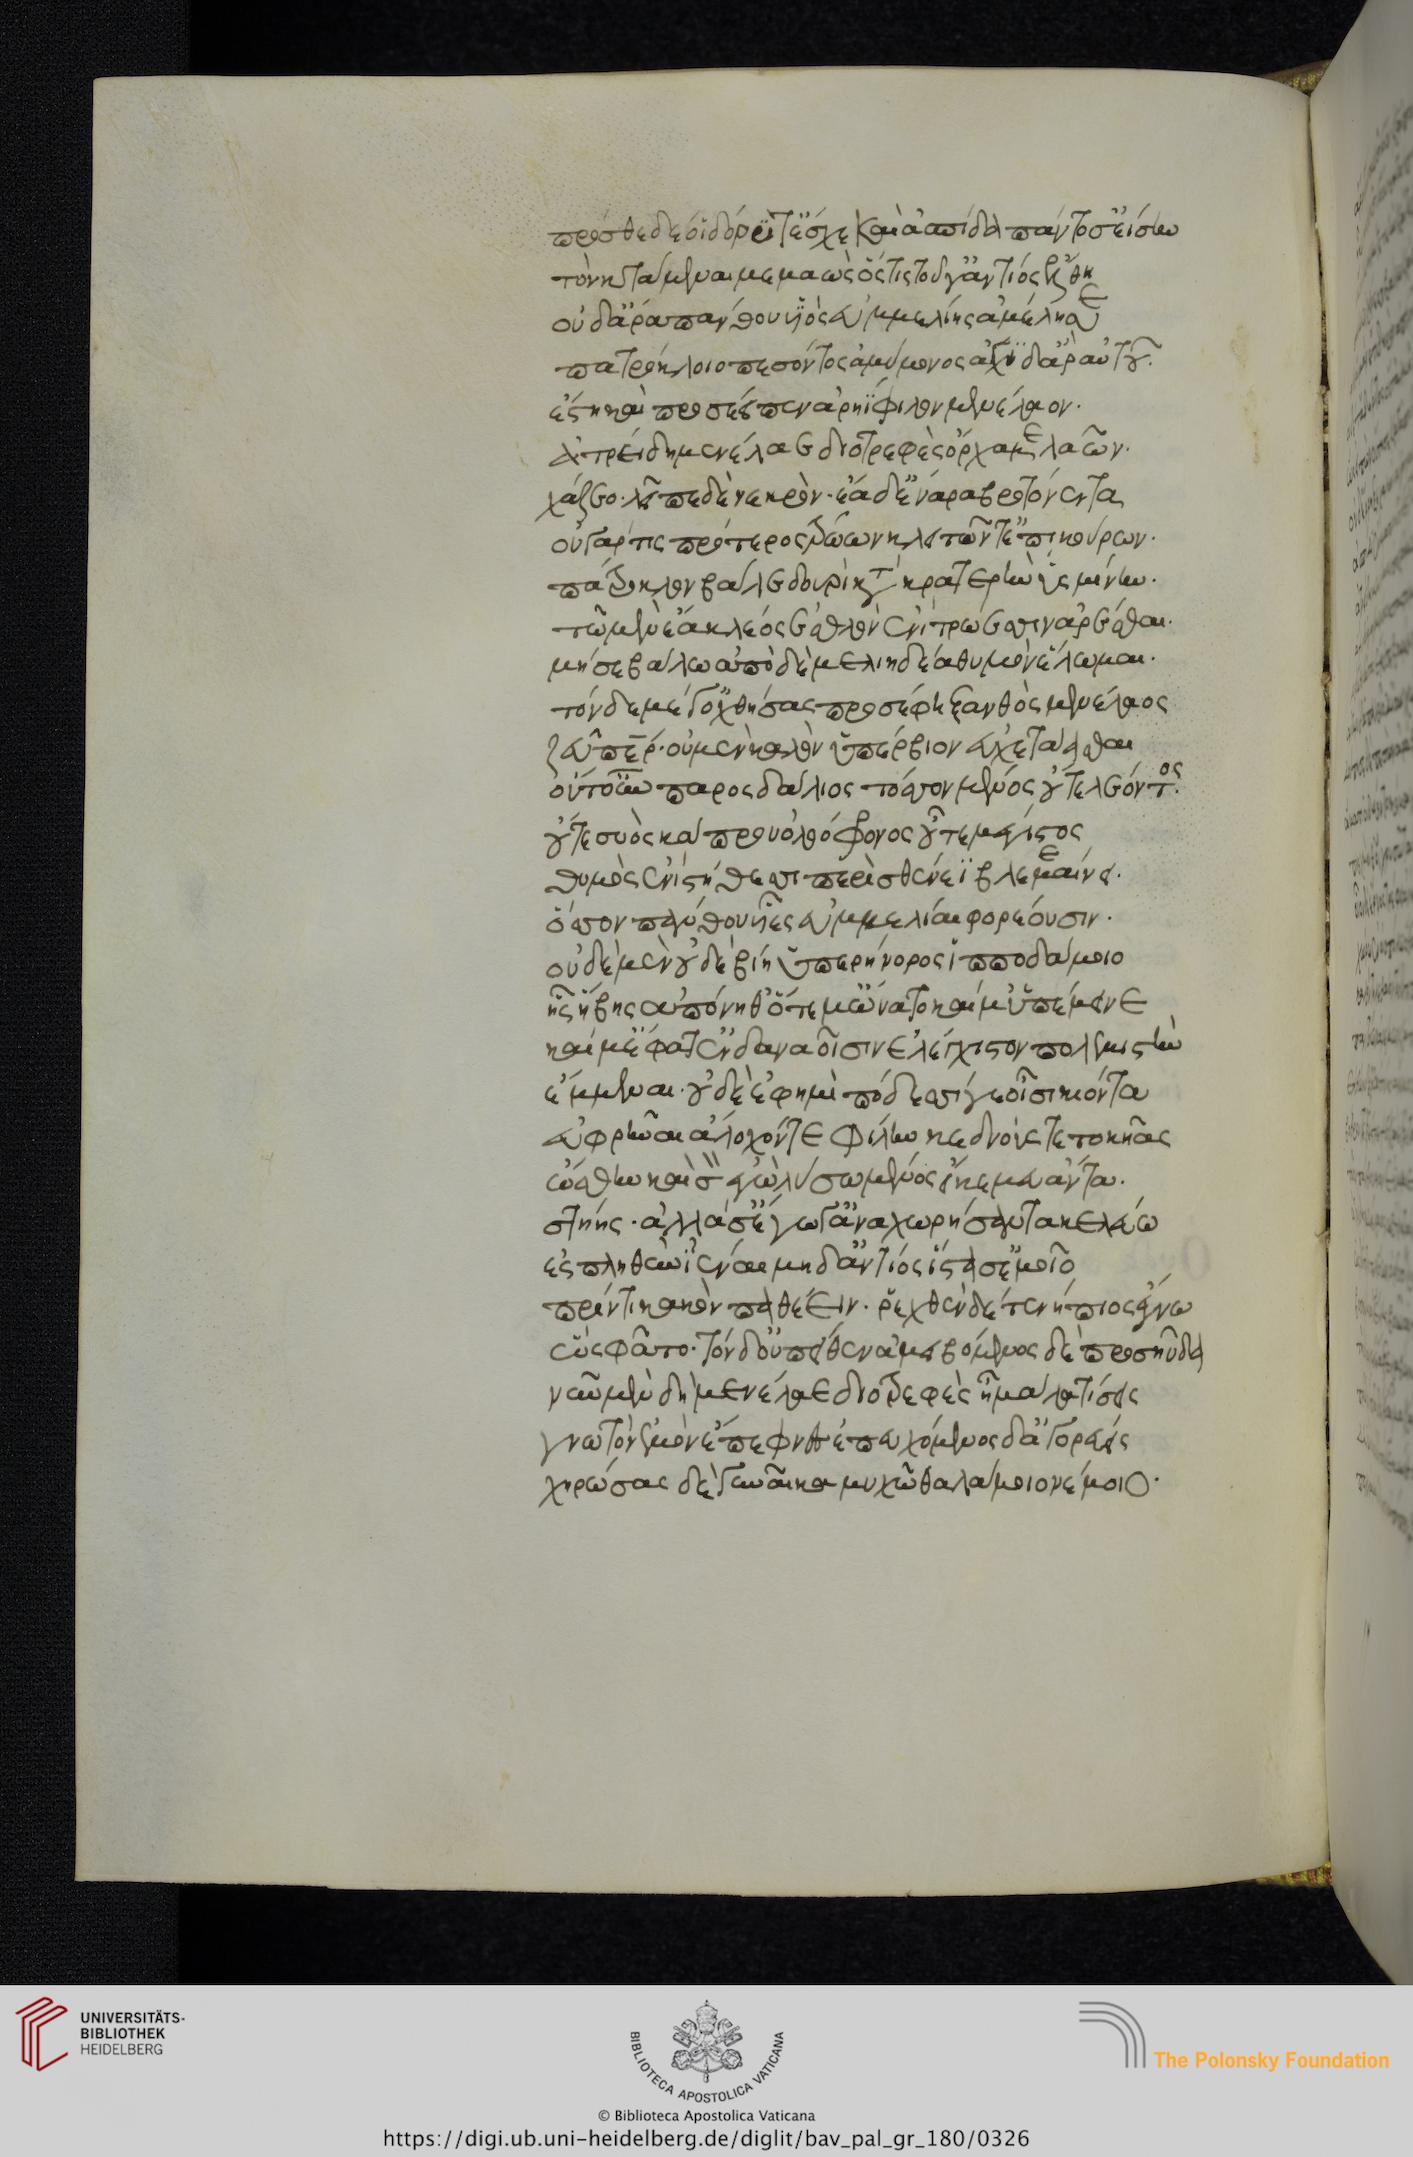 πρόσθε δέ οἱ δόρυ τ' ἔσχε καὶ ἀσπίδα πάντοσ' ἐΐσην
τὸν κτάμεναι μεμαὼς ὅστις τοῦγ' ἀντίος ἔλθη
οὐδ' ἄρα πάνθου υἱὸς εὐμμελίης ἀμέλησε
πατρόκλοιο πεσόντος ἀμύμονος ἄγχι δ' ἄρ' αὐτοῦ.
ἔστη καὶ προσέειπεν ἀρηΐφιλον μενέλαον.
ἀτρείδη μενέλαε διοτρεφὲς ὄρχαμε λαῶν.
χάζεο. λεῖπε δὲ νεκρὸν. ἔα δ' ἔναρα βροτόεντα
οὐ γάρ τις πρότερος τρώων κλειτῶν τ' ἐπικούρων.
πάτροκλον βάλε δουρὶ κατὰ κρατερὴν ὑσμίνην.
τῶ με ἔα κλέος ἐσθλὸν ἐνὶ τρώεσσιν ἀρέσθαι.
μή σε βάλω ἀπὸ δὲ μελιηδέα θυμὸν ἕλωμαι.
τὸν δὲ μέγ' ὀχθήσας προσέφη ξανθὸς μενέλαος
ζεῦ πάτερ. οὐ μὲν καλὸν ὑπέρβιον εὐχετάασθαι
οὔτ' οὖν παρδάλιος τόσσον μένος οὔτε λέοντος.
οὔτε συὸς κάπρου ὀλοόφρονος οὗτε μέγιστος
θυμὸς ἐνὶ στήθεσσι περὶ σθένεϊ βλεμεαίνει.
ὅσσον πάνθου υἷες εὐμμελίαι φορέουσιν.
οὐδὲ μὲν οὐδὲ βίη ὑπερήνορος ἱπποδάμοιο
ἧς ἥβης ἀπόνηθ' ὅτε μ' ὤνατο καί μ' ὑπέμεινε
καί μ' ἔφατ' ἐν δαναοῖσιν ἐλέγχιστον πολεμιστὴν
ἔμμεναι. οὐδὲ ἑ φημὶ πόδεσσί γε οἷσι κιόντα
εὐφρῆναι ἄλοχόν τε φίλην κεδνούς τε τοκῆας
ὥς θην καὶ σὸν ἐγὼ λύσω μένος εἴ κε μευ ἄντα.
στήης. ἀλλά σ' ἔγωγ' ἀναχωρήσαντα κελεύω
ἐς πληθὺν ἰέναι μηδ' ἀντίος ἵστασ' ἐμοῖο
πρίν τι κακὸν παθέειν. ῥεχθὲν δέ τε νήπιος ἔγνω
ὣς φάτο. τὸν δ' οὐ πεῖθεν ἀμειβόμενος δὲ προσηύδα
νῦν μὲν δὴ μενέλαε διοτρεφὲς ἦ μάλα τίσεις
γνωτὸν ἐμὸν ἔπεφνες ἐπευχόμενος δ' ἀγορεύεις
χηρώσας δὲ γυναῖκα μυχῶ θαλάμοιο νέμοιο.
UNIVERSITÄTS-
BIBLIOTHEK
HEIDELBERG
BIBLIOTECA APOSTOLICA VATICANA
The Polonsky Foundation
© Biblioteca Apostolica Vaticana
https://digi.ub.uni-heidelberg.de/diglit/bav_pal_gr_180/0326